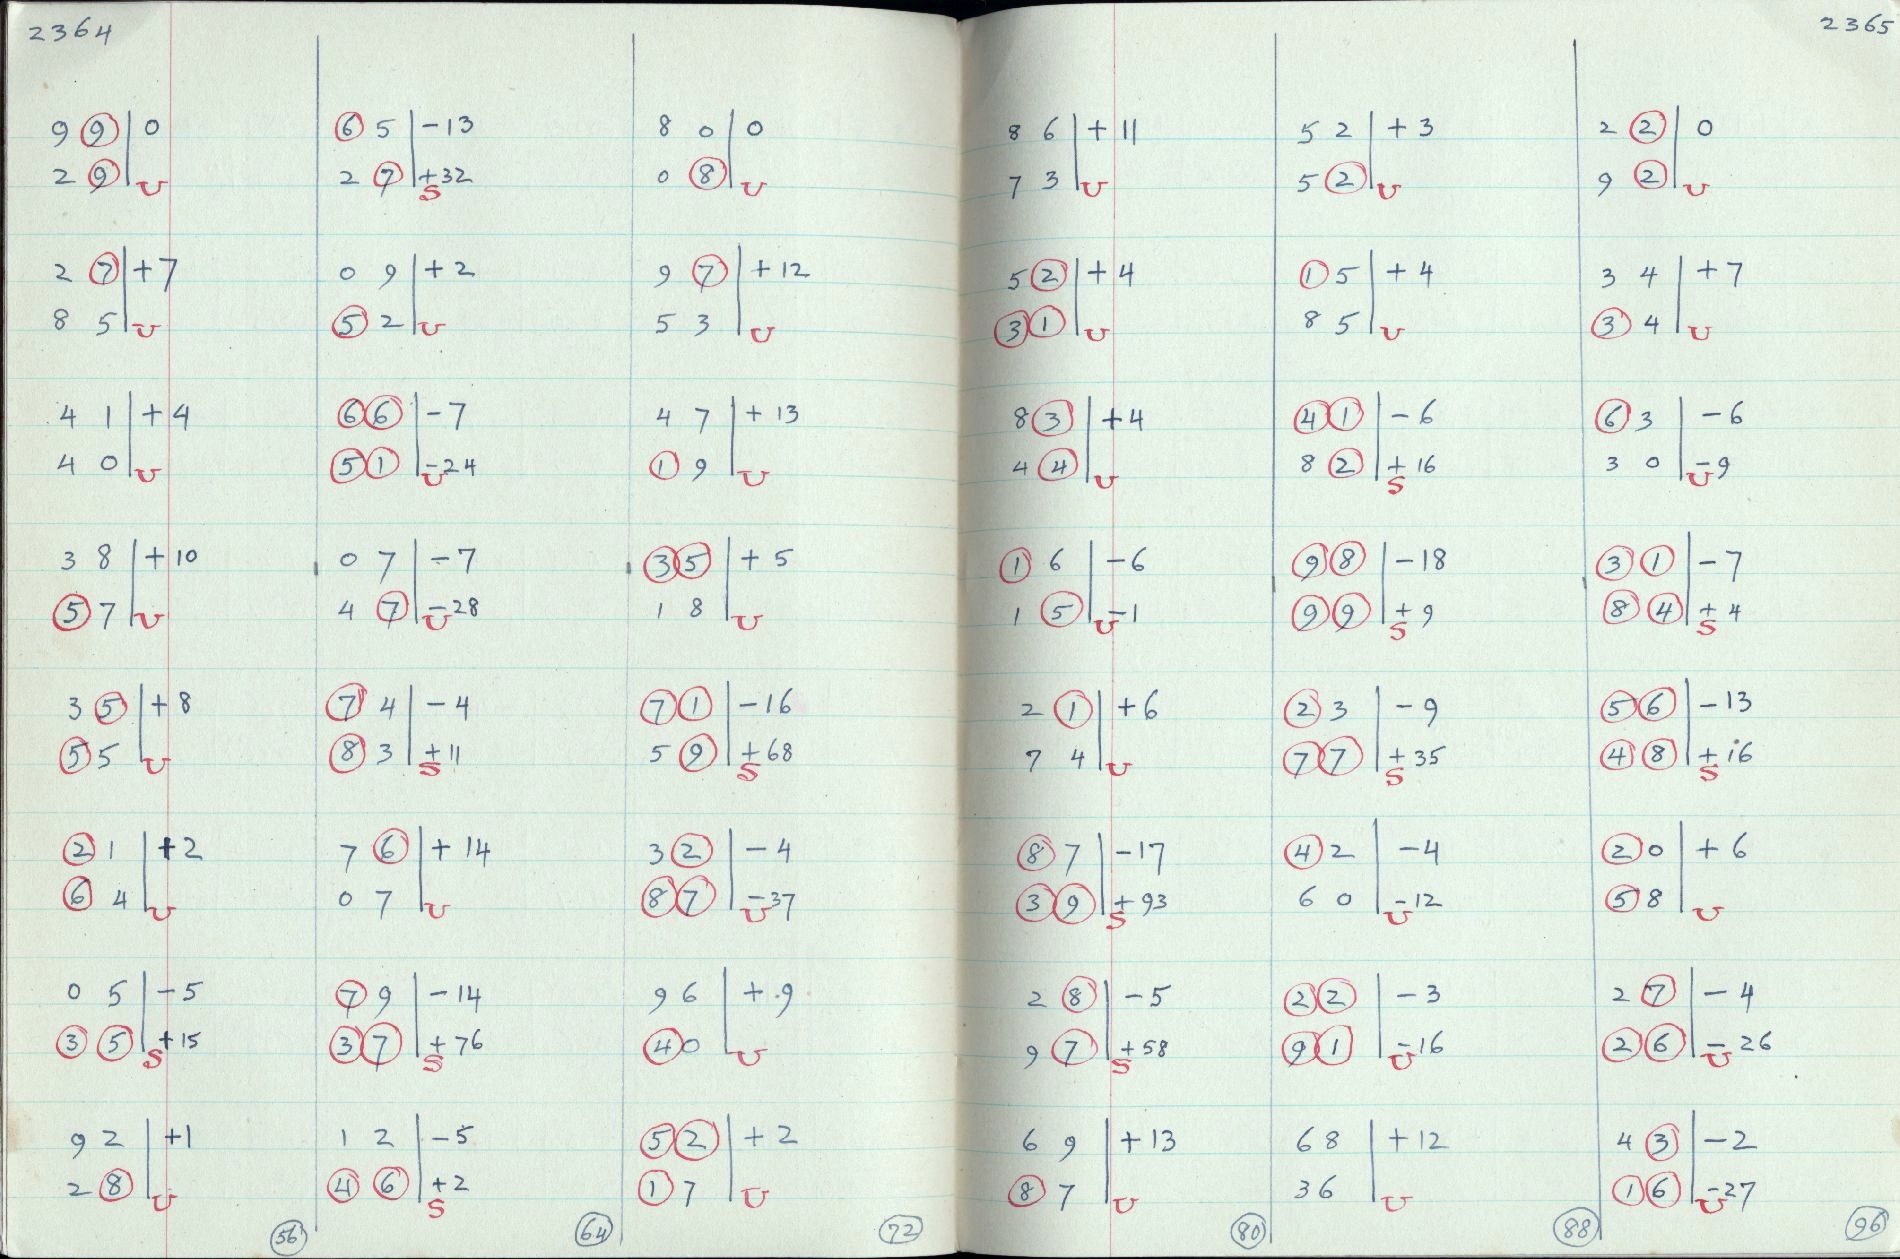 2364
9 9 | 0
2 9 | U
2 7 | +7
8 5 | U
4 1 | +4
4 0 | U
3 8 | +10
5 7 | U
3 5 | +8
5 5 | U
2 1 | +2
6 4 | U
0 5 | -5
3 5 | +15
S
9 2 | +1
2 8 | U
56
6 5 | -13
2 7 | +32
S
0 9 | +2
5 2 | U
6 6 | -7
5 1 | -24
U
0 7 | -7
4 7 | -28
U
7 4 | -4
8 3 | +11
S
7 6 | +14
0 7 | U
7 9 | -14
3 7 | +76
S
1 2 | -5
4 6 | +2
S
64
8 0 | 0
0 8 | U
9 7 | +12
5 3 | U
4 7 | +13
1 9 | U
3 5 | +5
1 8 | U
7 1 | -16
5 9 | +68
S
3 2 | -4
8 7 | -37
U
9 6 | +9
4 0 | U
5 2 | +2
1 7 | U
72
2365
8 6 | +11
7 3 | U
5 2 | +4
3 1 | U
8 3 | +4
4 4 | U
1 6 | -6
1 5 | -1
U
2 1 | +6
7 4 | U
8 7 | -17
3 9 | +93
S
2 8 | -5
9 7 | +58
S
6 9 | +13
8 7 | U
80
5 2 | +3
5 2 | U
1 5 | +4
8 5 | U
4 1 | -6
8 2 | +16
S
9 8 | -18
9 9 | +9
S
2 3 | -9
7 7 | +35
S
4 2 | -4
6 0 | -12
U
2 2 | -3
9 1 | -16
U
6 8 | +12
3 6 | U
88
2 2 | 0
9 2 | U
3 4 | +7
3 4 | U
6 3 | -6
3 0 | -9
U
3 1 | -7
8 4 | +4
S
5 6 | -13
4 8 | +16
S
2 0 | +6
5 8 | U
2 7 | -4
2 6 | -26
U
4 3 | -2
1 6 | -27
U
96